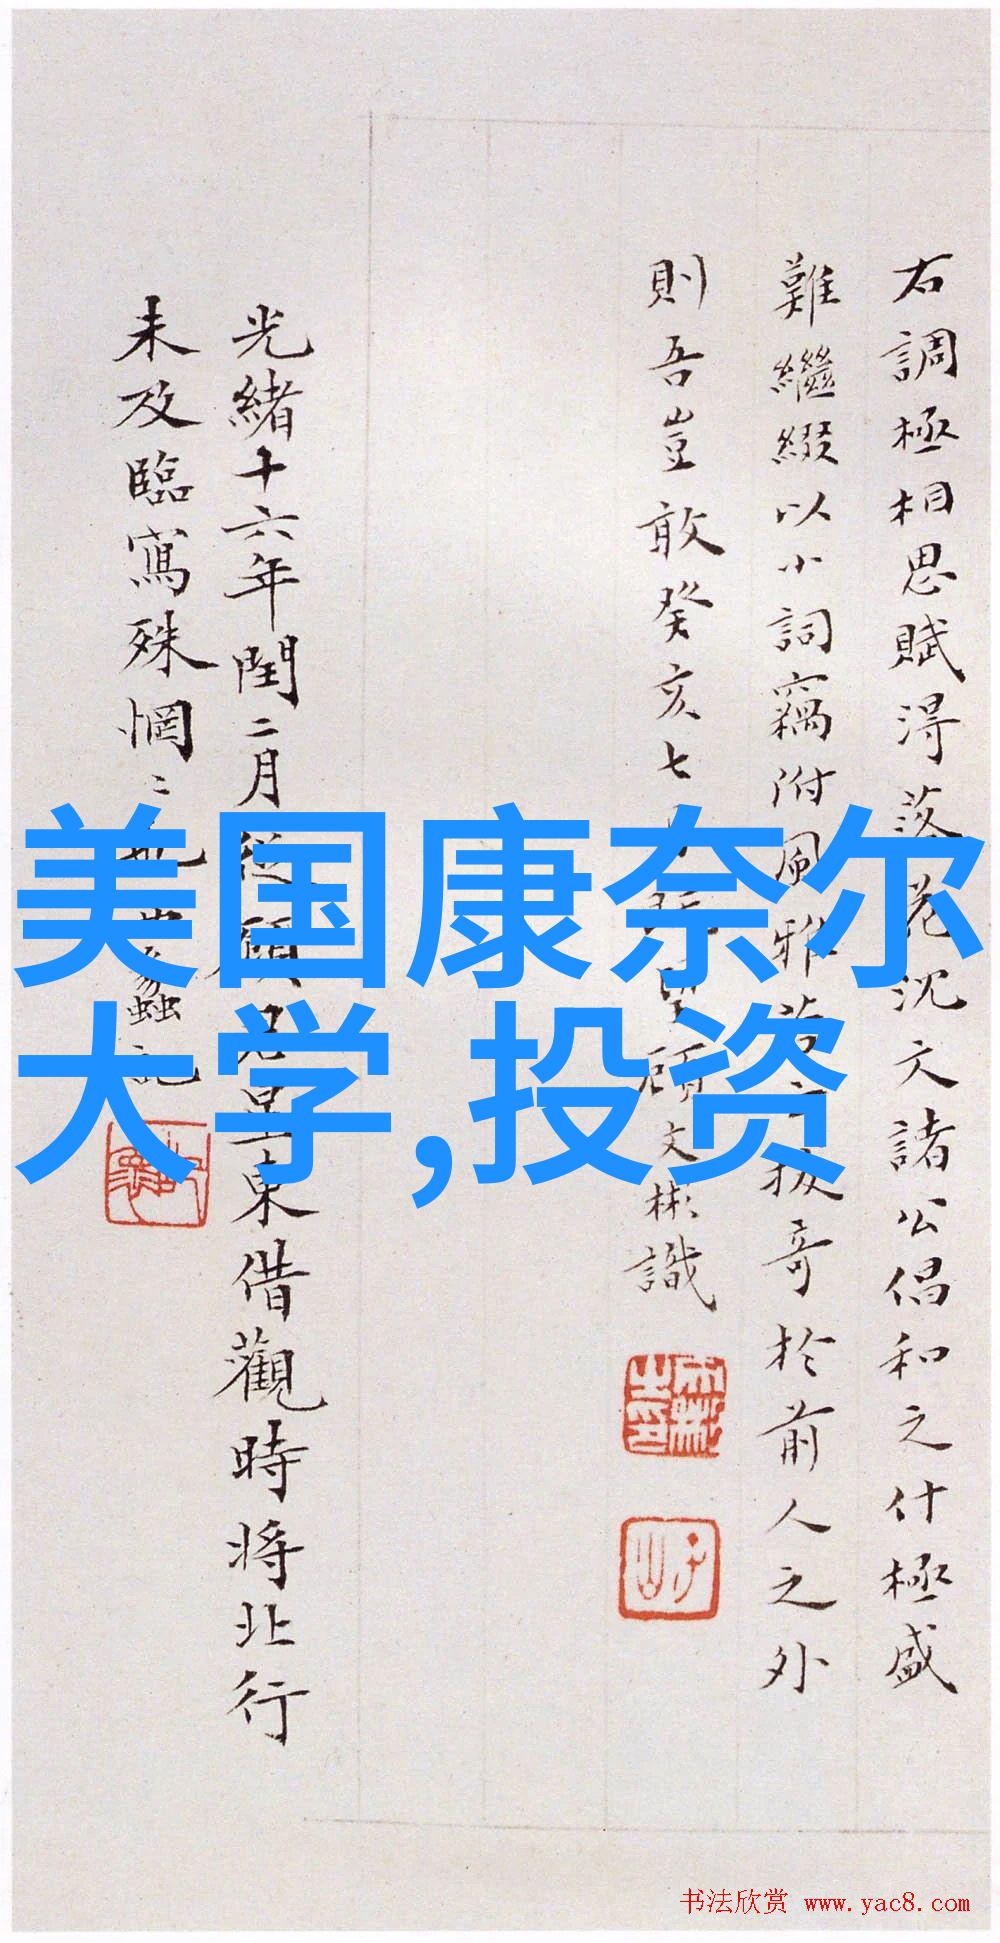 右調極相思賦得落花沈文諸公倡和之什極盛
難繼綴以小詞竊附風雅若 拔奇於前人之外
則吾豈敢癸亥七 顧文彬識
光緒十六年閏二月從顧 東借觀時將北行
未及臨寫殊惘〻 記
美国康奈尔
大学,投资
书法欣赏 www.yac8.com